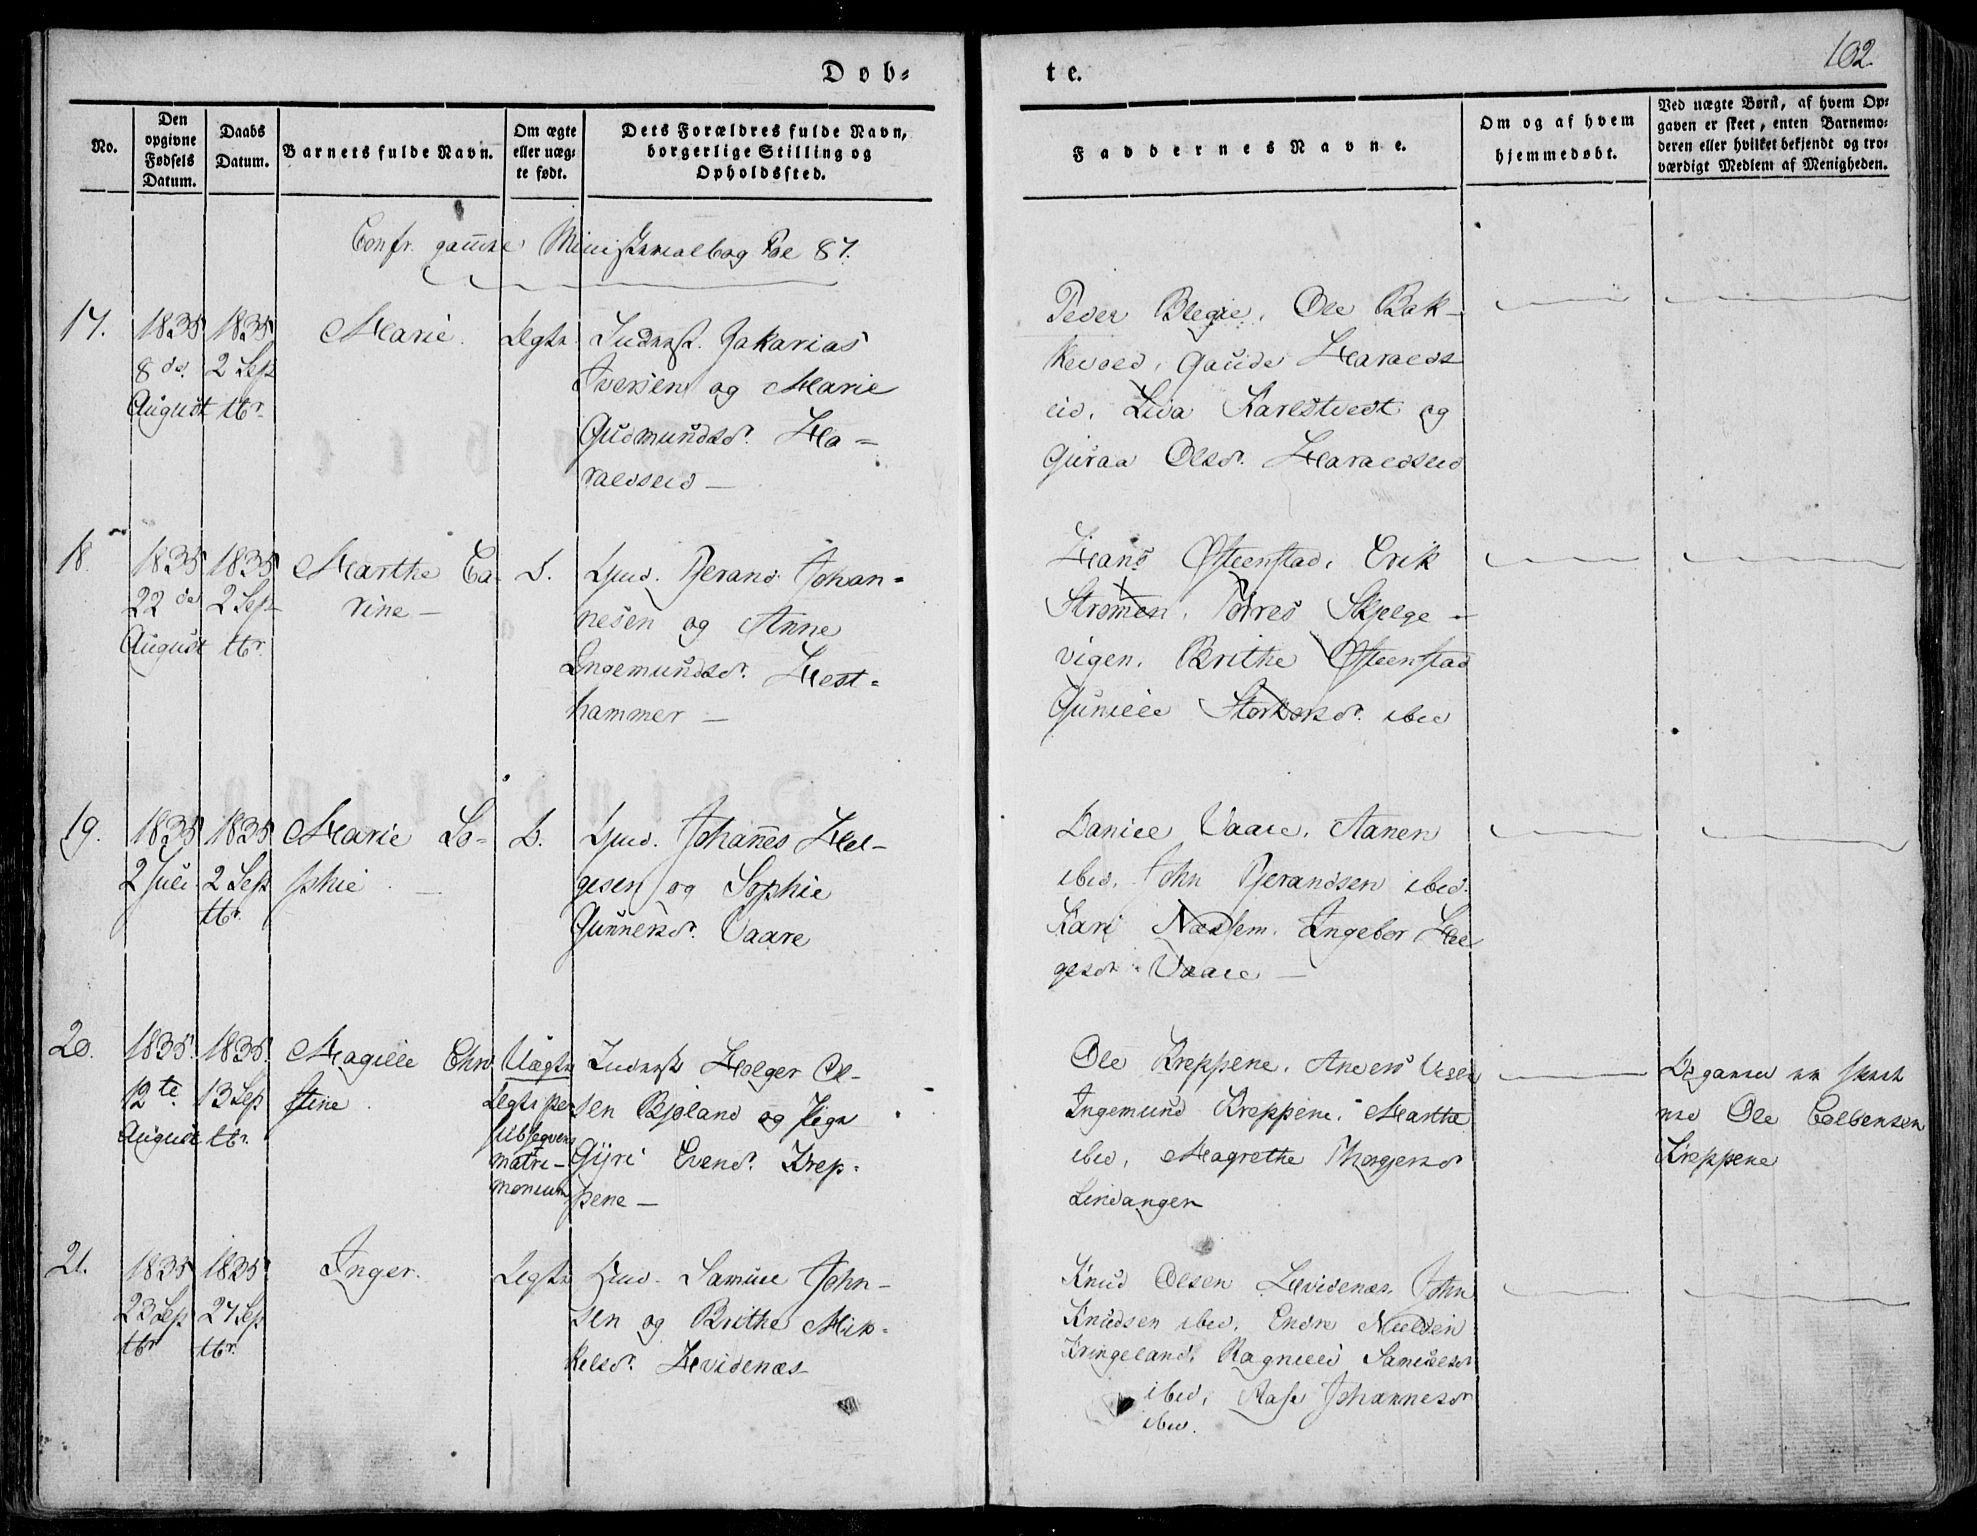 Døb=
te.
102.
No.
Den opgivne Fødsels Datum.
Daabs Datum.
Barnets fulde Navn.
Om ægte eller uægte født.
Dets Forældres fulde Navn, borgerlige Stilling og Opholdssted.
Faddernes Navne.
Om og af hvem hjemmedøbt.
Ved uægte Børn, af hvem Opgaven er skeet, enten Barnemoderen eller hvilket bekjendt og troværdigt Medlem af Menigheden.
Confr. gamle Ministerialbog Fol 87.
17.
1835
8de
August
1835
2 Sep
tbr.
Marie.
Ægte
Inderst. Zakarias
Iversen og Marie
Gudmundsdr. Ha=
raldseid —
Peder Blegie. Ole Bak=
kevold, Gaude Haralds
eid, Liva Karlstvedt og
Guraa Olsdr. Haraldseid
18.
1835
22de
August
1835
2 Sep
tbr.
Marthe Ca=
rine —
Johan=
nesen og Anne
Ingemundsdr. Hest=
hammer —
Hans Østeenstad, Erik
Strømen. Torres Skjelge=
vigen. Brithe Østeenstad
Gunilde Storkorsdr. ibid
19.
1835
2 Juli
1835
2 Sep
tbr.
Marie So=
phie —
Johannes Hel=
gesen og Sophie
Gunnersdr. Vaare
Daniel Vaare. Aanen
ibid. John Tjerandsen ibid.
Kari Næssem. Ingebor Hel
gesdr. Vaare —
20.
1835.
12te
August
1835.
13 Sep
tbr.
Magille Chri
stine.
Uægte
Legti per
subseqvens
matri=
monium
Inderst Holger Ol=
sen Bjoland og Pige
Gyri Evend. Krep=
pene —
Ole Kreppene. Anders
Ingemund Kreppene. Marthe
ibid, Magrethe Thorgjersdr
Lindanger
Opgaven er skeet
ved Ole Colbensen
Kreppene
21.
1835
23 Sep
tbr
1835
27 Sep
tbr.
Inger.
Ægte
Samuel John=
sen og Brithe Mik=
kelsdr. Hvidenæs
Knud Olsen Hvidenæs. John
Knudsen ibid. Endre Nielsen
Kringeland. Ragnild Samuelsdr
ibid, Aase Johannesdr
ibid.